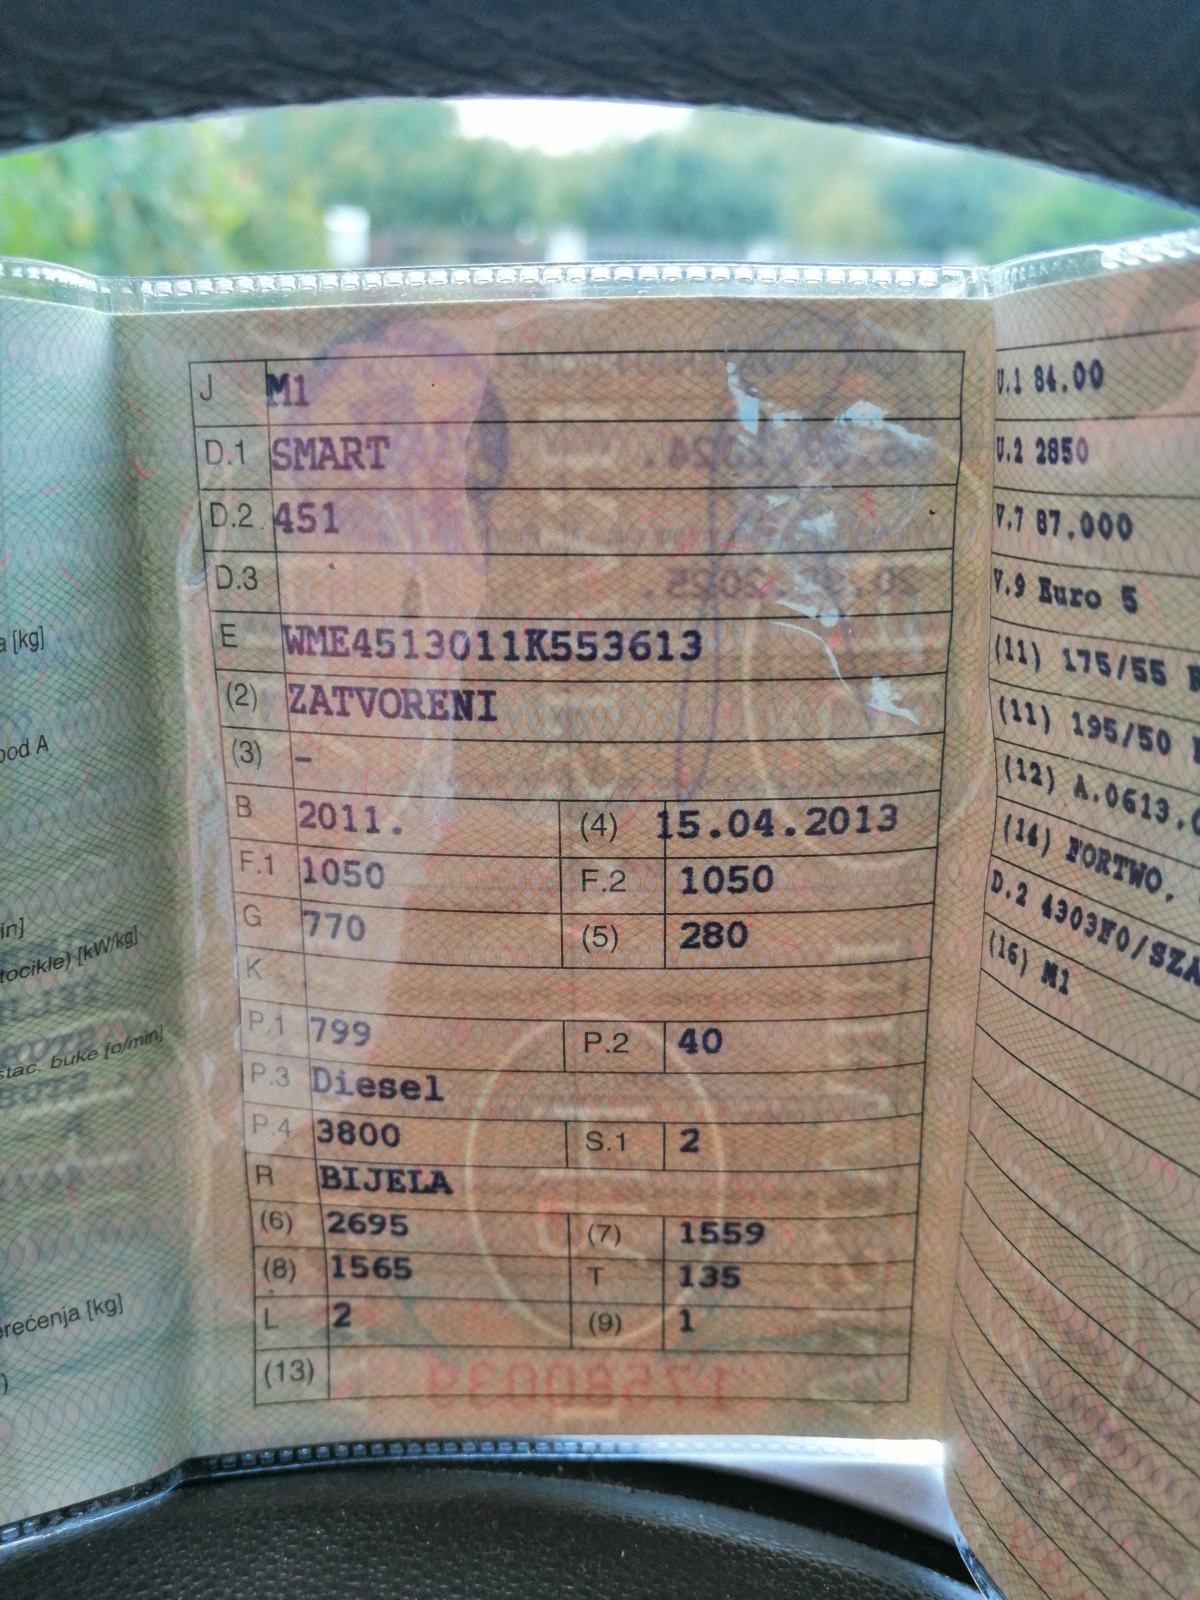 a [kg]
pod A
in]
tocikle) [kW/kg]
stac. buke [o/min]
erećenja [kg]
)
J M1
D.1 SMART
D.2 451
D.3
E WME4513011K553613
(2) ZATVORENI
(3) –
B 2011. (4) 15.04.2013
F.1 1050 F.2 1050
G 770 (5) 280
K
P.1 799 P.2 40
P.3 Diesel
P.4 3800 S.1 2
R BIJELA
(6) 2695 (7) 1559
(8) 1565 T 135
L 2 (9) 1
(13)
U.1 84.00
U.2 2850
V.7 87.000
V.9 Euro 5
(11) 175/55
(11) 195/50
(12) A.0613.
(14) FORTWO,
D.2 4303F0/SZA
(16) M1